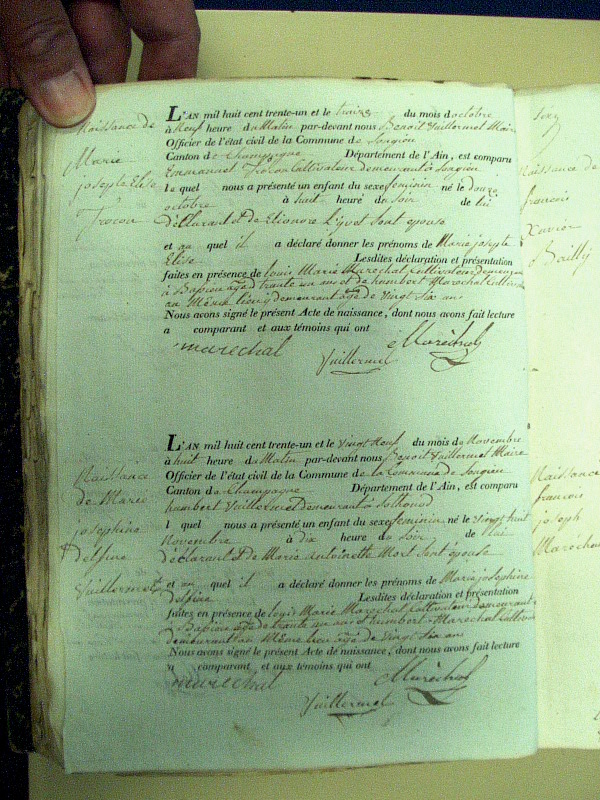 Naissance de
Marie
josephe Elise
frocon
L'AN mil huit cent trente-un et le treize du mois d'octobre
à Neuf heure du Matin par-devant nous Benoit Vuillermet Maire
Officier de l'état civil de la Commune de Songieu
Canton de Champagne Département de l'Ain, est comparu
Emmanuel frocon Cultivateur demeurant à Songieu
lequel nous a présenté un enfant du sexe feminin né le douze
octobre à huit heure du Soir de lui
déclarant et de Eléonore sont epouse
et au quel il a déclaré donner les prénoms de Marie josephe
Elise Lesdites déclaration et présentation
faites en présence de louis Marie Marechal Cultivateur demeurant
à Bassieu agé de trante un ans et de humbert Marechal Cultiva
au Même lieu demeurant agé de Vingt Six ans
Nous avons signé le présent Acte de naissance, dont nous avons fait lecture
a comparant et aux témoins qui ont
marechal Vuillermet Maréchal
Naissance
de Marie
josephine
delphine
Vuillermet
L'AN mil huit cent trente-un et le vingt Neuf du mois de Novembre
à huit heure du Matin par-devant nous Benoit Vuillermet Maire
Officier de l'état civil de la Commune de la Commune de Songieu
Canton de Champagne Département de l'Ain, est comparu
humbert Vuillermet demeurant à Sothonod
l quel nous a présenté un enfant du sexe feminin né le vingt huit
Novembre à dix heure du Soir de lui
déclarant et de Marie Antoinette Mort Sont épouse
et au quel il a déclaré donner les prénoms de Marie josephine
delphine Lesdites déclaration et présentation
faites en présence de louis Marie Marechal Cultivateur demeurant
à Bassieu agé de trante un ans et humbert Marechal Cultiva
demeurant au Même lieu agé de vingt Six ans
Nous avons signé le présent Acte de naissance, dont nous avons fait lecture
a comparant et aux témoins qui ont
marechal Vuillermet Maréchal
Naissance de
francois
Xavier
Bailly
Naissance
francois
joseph
Maréchal